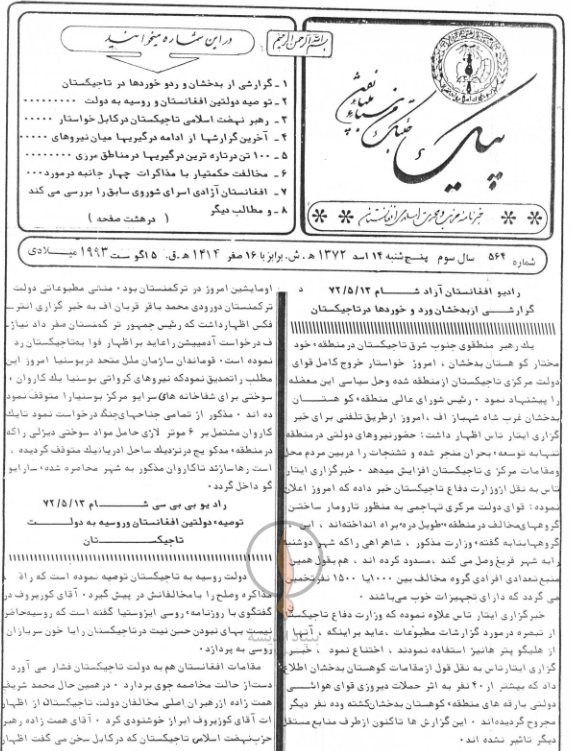 بسم الله الرحمن الرحیم
در این شماره میخوانید
۱ - گزارشی از بدخشان و زدو خوردها در تاجیکستان
۲ - توصیه دولتین افغانستان و روسیه به دولت ۰۰۰۰۰۰۰۰۰
۳ - رهبر نهضت اسلامی تاجیکستان درکابل خواستار ۰۰۰۰۰
۴ - آخرین گزارشها از ادامه درگیریها میان نیروهای ۰۰۰۰۰
۵ - ۱۰۰ تن درتازه ترین درگیریها درمناطق مرزی ۰۰۰۰۰۰۰
۶ - مخالفت حکمتیار با مذاکرات چهار جانبه درمورد۰۰۰
۷ - افغانستان آزادی اسرای شوروی سابق را بررسی می کند
۸ - و مطالب دیگر
( درهشت صفحه )
پیک
خبرنامه حزب وحدت اسلامی افغانستان
شماره ۵۶۴ سال سوم پنج شنبه ۱۴ اسد ۱۳۷۲ ه.ش. برابز با ۱۶ صفر ۱۴۱۴ ه.ق. ۵ اگوست ۱۹۹۳ میلادی
رادیو افغانستان آزاد شام ۷۲/۵/۱۳
گزارشی ازبدخشان ورد و خوردها درتاجیکستان
یک رهبر منطقوی جنوب شرق تاجیکستان درمنطقه خود
مختار کو هستان بدخشان ، امروز خواستار خروج کامل قوای
دولت مرکزی تاجیکستان ازمنطقه شده وحل سیاسی این معضله
را پیشنهاد نمود ۰ رئیس شورای عالی منطقه کو هستان
بدخشان غرب شاه شهباز اف ،امروز ازطریق تلفنی برای خبر
گزاری ایتار تاس اظهار داشت : حضورنیروهای دولتی درمنطقه
تنهابه توسعه بحران منجر شده و تشنجات را دربین مردم محل
ومقامات مرکز ی تاجیکستان افزایش میدهد ۰ خبرگزاری ایتار
تاس به نقل ازوزارت دفاع تاجیکستان خبر داد که امروز اعلان
نموده : قوای دولت مرکزی تهاجمی به منظور تارومار ساختن
گروههای مخالف در منطقه طویل دره براه انداخته اند ، این
گروههابنابه گفته وزارت مذکور ، شاهراهی راکه شهر دوشنبه
رابه شهر قریغ وصل می کند ،مسدود کرده اند ، هم بقول همین
منبع تعدادی افرادی گروه مخالف بین ۱۰۰۰یا ۱۵۰۰ نفر تخمین
می گردد که دارای تجهیزات خوب می باشند ۰
خبر گزاری ایتار تاس علاوه نموده که وزارت دفاع تاجیکستان
از تبصره درمورد گزارشات مطبوعات ،عاید براینکه ، آنها
از هلیگو پتر هانیز استفاده نمودند ، اختناع نمود ، خبر
گزاری ایتارتاس به نقل قول ازمقامات کوهستان بدخشان اطلاع
داد که بیشتر از ۴۰ نفر به اثر حملات دیروزی قوای هواشی
دولتی بارقه های منطقه کوهستان بدخشان کشته وده نفر دیگر
مجروح گردیده اند ۰ این گزارش ها تاکنون ازطرف منابع مستقل
دیگر تاثیر نشده اند ۰
اومایشین امروز در ترکمنستان بود ۰ منشی مطبوعاتی دولت
ترکمنستان دورودی محمد باقر قربان اف به خبر گزاری انتر
فکس اظهارداشت که رئیس جمهور تر کمنستان مقر داد نیاز
ف درخواست آدمییشن راعاید بر اظهار قوا به تاجیکستان رد
نموده است ۰ قوماندان سازمان ملل متحد دربوسنیا امروز این
مطلب راتصدیق نمودکه نیروهای کرواتی بوسنیا یک کاروان
سوختی برای شفاخانه های سرایو مرکز بوسنیارا متوقف نمو
ده اند ۰ مذکور از تمامی جناحهای جنگ درخواست نمود تایک
کاروان مشتمل بر ۶ موتر لاری حامل مواد سوختی دیزلی راکه
درمنطقه مدکو یج درنزدیک ساحل ادریاتیک متوقف گردیده ،
است رهاسازند تاکاروان مذکور به شهر محاصره شده سارایو
گو داخل گردد ۰
رادیو بی بی سی شام ۷۲/۵/۱۳
توصیه دولتین افغانستان وروسیه به دولت
تاجیکستان
دولت روسیه به تاجیکستان توصیه نموده است که راه
مذاکره وصلح را بامخالفانش در پیش گیرد ۰ آقای کوربروف در
گفتگوی با روزنامه روسی ایزوستیا گفته است که روسیه حاضر
نیست بهای نبودن حسن نیت درتاجیکستان رابا خون سربازان
روسی به پردازد ۰
مقامات افغانستان هم به دولت تاجیکستان فشار می آورد
دست از حالت مخاصمه جوی بردارد ۰ درهمین حال محمد شریف
همت زاده ازرهبران اصلی مخالفان دولت تاجیکستان از اظهار
ات آقای کوزیروف ابراز خوشنودی کرد ۰ آقای همت زاده رهبر
حزب نهضت اسلامی تاجیکستان که درکابل سخن می گفت اظهار